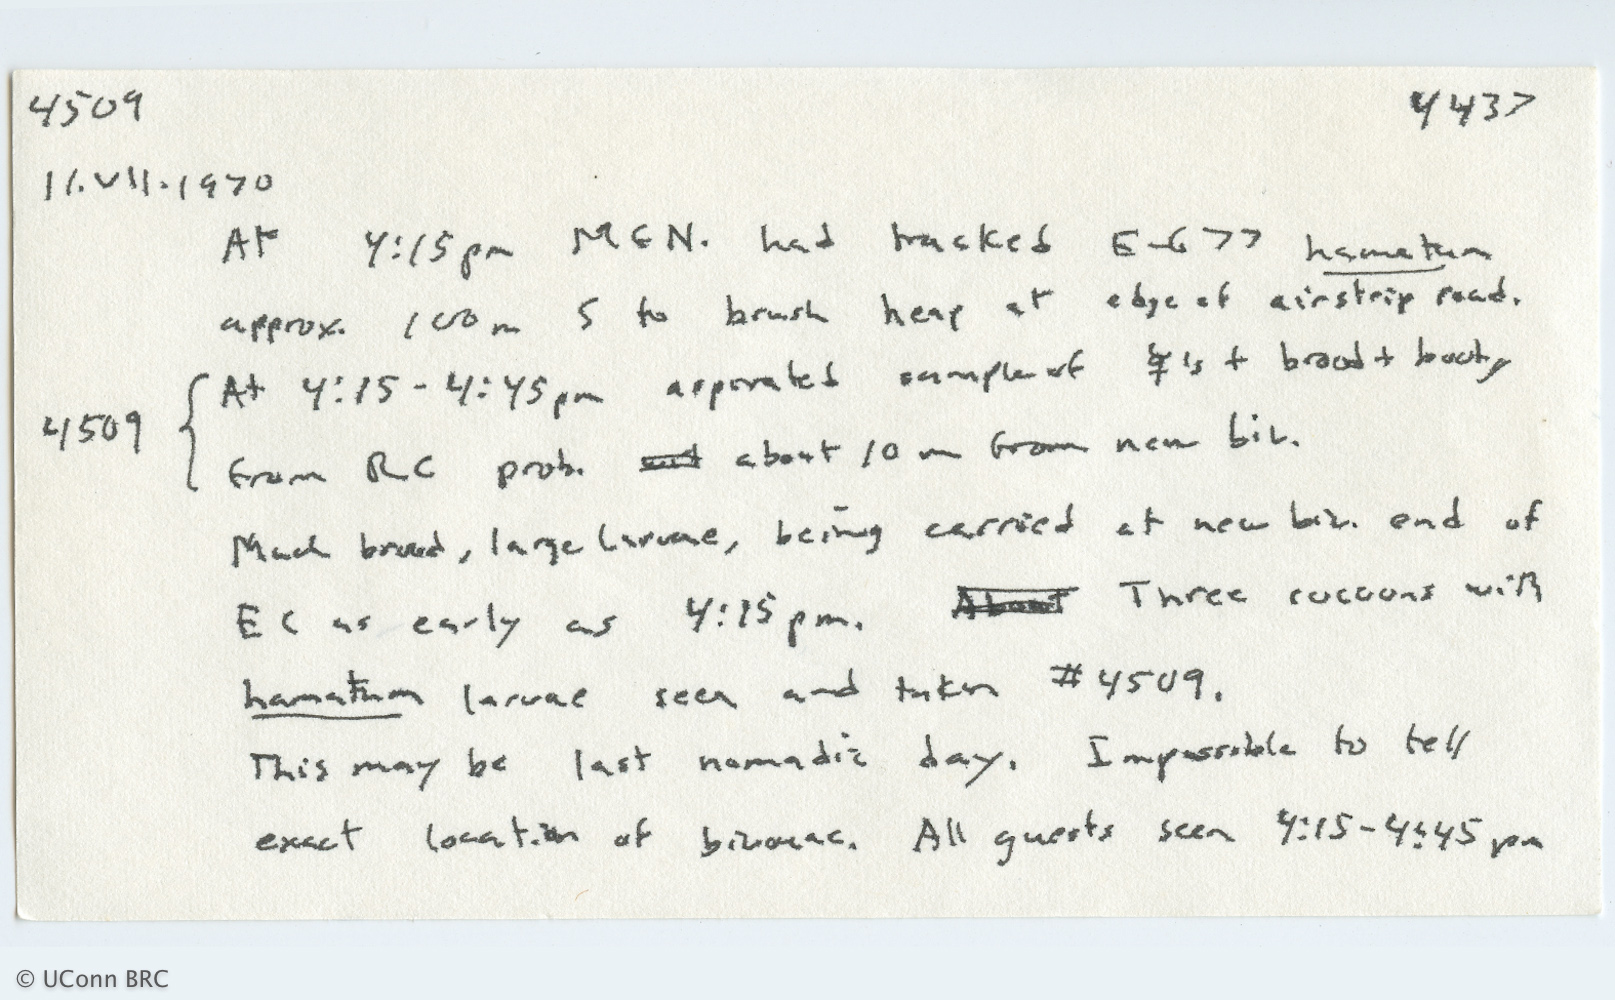 4509 4437
11.VII.1970
At 4:15 pm MEN. had tracked E-677 hamatum
approx. 100 m S to brush heap at edge of airstrip road.
4509 { At 4:15-4:45 pm aspirated sample of ☿'s + brood + booty
from RC prob. about 10 m from new biv.
Much brood, large larvae, being carried at new biv. end of
EC as early as 4:15 pm. About Three cocoons with
hamatum larvae seen and taken #4509.
This may be last nomadic day. Impossible to tell
exact location of bivouac. All guests seen 4:15-4:45 pm
© UConn BRC